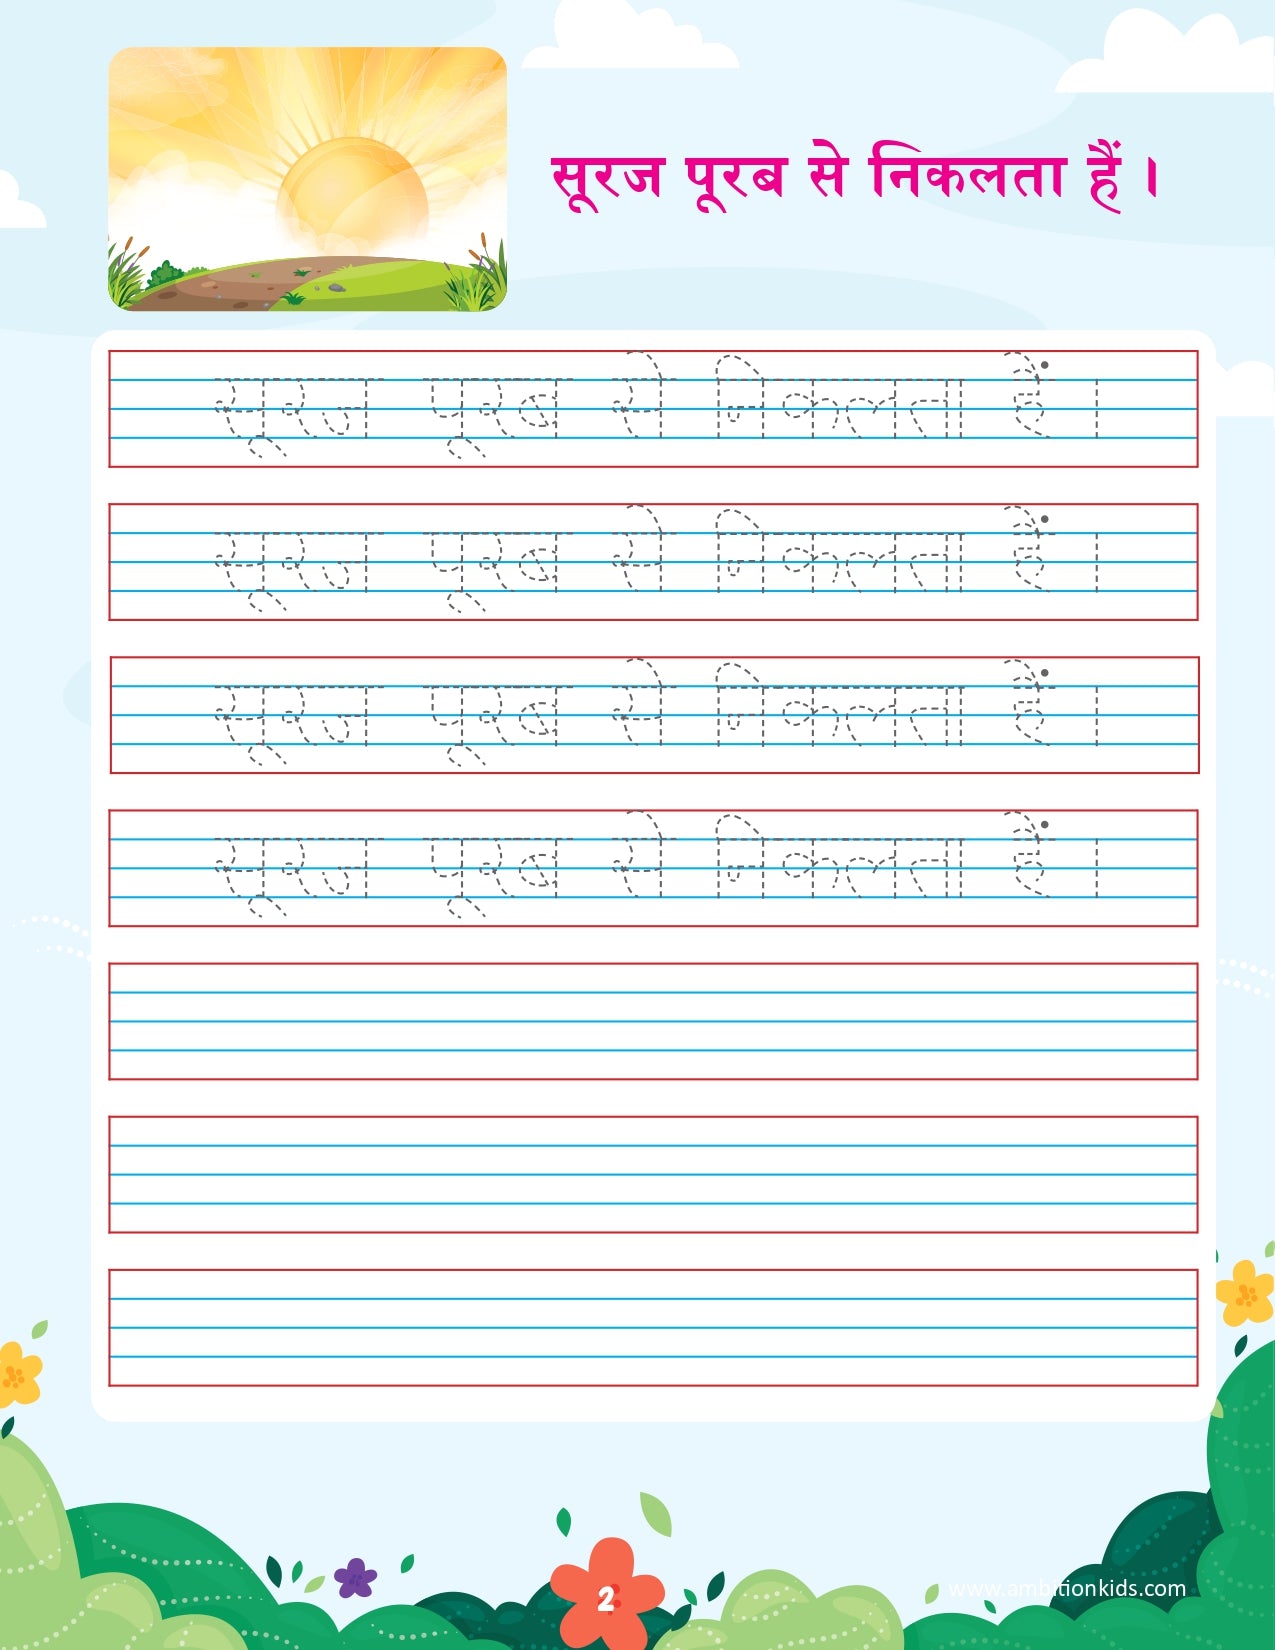 सूरज पूरब से निकलता हैं ।
सूरज पूरब से निकलता हैं ।
सूरज पूरब से निकलता हैं ।
सूरज पूरब से निकलता हैं ।
सूरज पूरब से निकलता हैं ।
2
www.ambitionkids.com